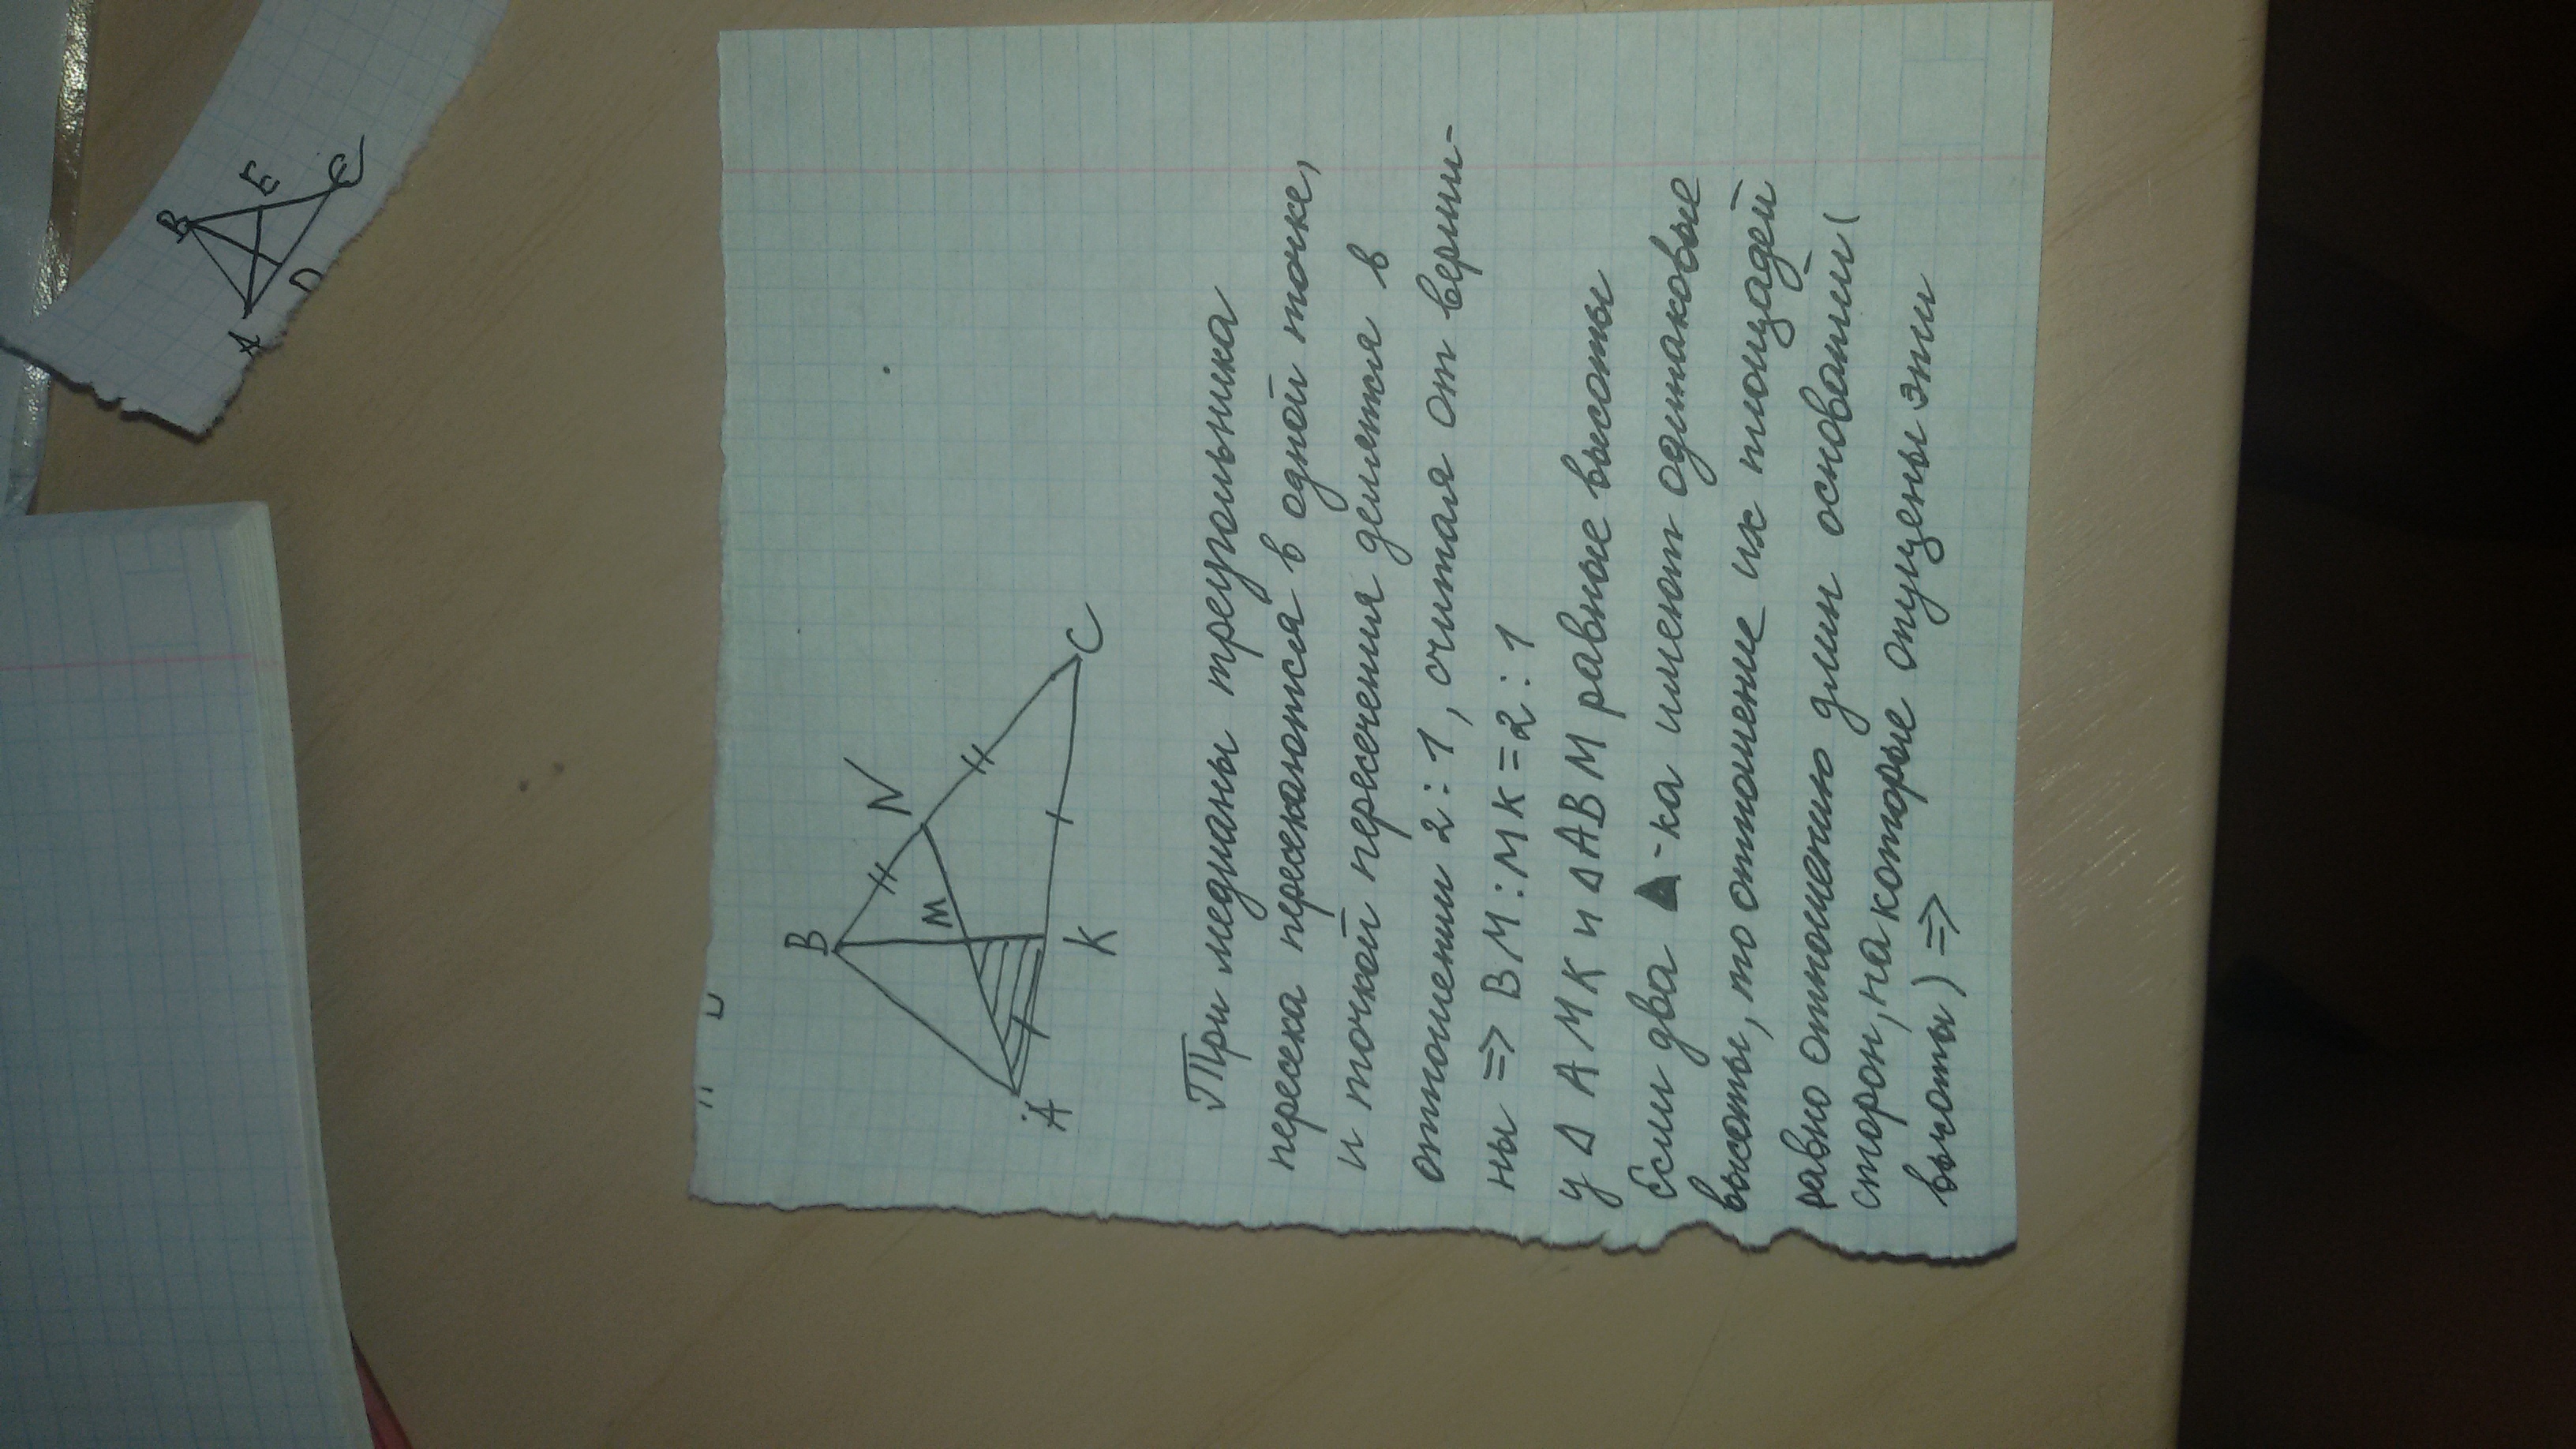 B
E
A
D
C
B
N
M
A
K
C
Три медианы треугольника
пересека пересекаются в одной точке,
и точкой пересечения делятся в
отношении 2:1, считая от верши-
ны => BM:MK=2:1
у Δ AMK и Δ ABM равные высоты
Если два ▲-ка имеют одинаковые
высоты, то отношение их площадей
равно отношению длин оснований(
сторон, на которые опущены эти
высоты) =>